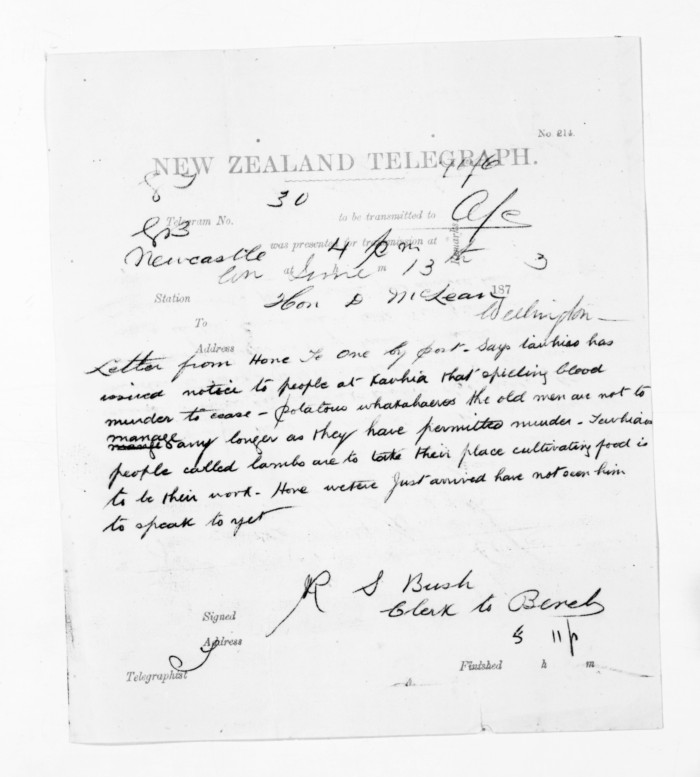 No 214.
NEW ZEALAND TELEGRAPH.
Telegram No. 30 to be transmitted to A/c
Remarks
Newcastle was presented for transmission at 4 pm
on at June m 13th 3
Station Hon D McLean 187
To Wellington
Address
Letter from Hone Te One by post - Says tawhiao has
issued notice to people at Kawhia that spilling blood
murder to cease - Potatous whakahaeres the old men are not to
manage any longer as they have permitted murder - Tawhiaos
people called lambs are to take their place cultivating food is
to be their work - Hone wetere Just arrived have not seen him
to speak to yet
R S Bush
Clerk to Bench
Signed
Address
Telegraphist
Finished h m